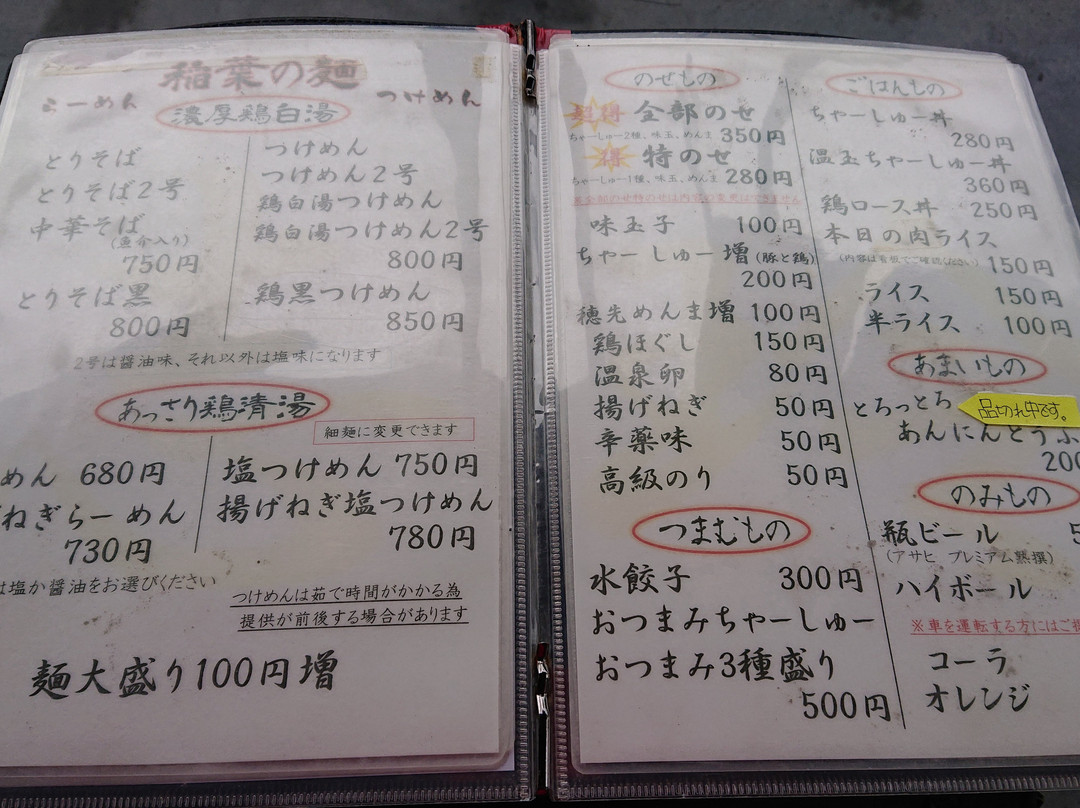 稲葉の麺
らーめん
つけめん
濃厚鶏白湯
とりそば
とりそば2号
中華そば
(魚介入り)
750円
とりそば黒
800円
つけめん
つけめん2号
鶏白湯つけめん
鶏白湯つけめん2号
800円
鶏黒つけめん
850円
2号は醤油味、それ以外は塩味になります
あっさり鶏清湯
細麺に変更できます
めん 680円
ねぎらーめん
730円
は塩か醤油をお選びください
塩つけめん 750円
揚げねぎ塩つけめん
780円
つけめんは茹で時間がかかる為
提供が前後する場合があります
麺大盛り100円増
のせもの
超得 全部のせ
ちゃーしゅー2種、味玉、めんま 350円
得 特のせ
ちゃーしゅー1種、味玉、めんま 280円
※全部のせ特のせは内容の変更はできません
味玉子 100円
ちゃーしゅー増(豚と鶏)
200円
穂先めんま増 100円
鶏ほぐし 150円
温泉卵 80円
揚げねぎ 50円
辛薬味 50円
高級のり 50円
つまむもの
水餃子 300円
おつまみちゃーしゅー
おつまみ3種盛り
500円
ごはんもの
ちゃーしゅー丼
280円
温玉ちゃーしゅー丼
360円
鶏ロース丼 250円
本日の肉ライス
(内容は看板でご確認ください) 150円
ライス 150円
半ライス 100円
あまいもの
とろっとろ
品切れ中です。
あんにんどうふ
200
のみもの
瓶ビール 5
(アサヒ プレミアム熟撰)
ハイボール
※車を運転する方にはご提
コーラ
オレンジ